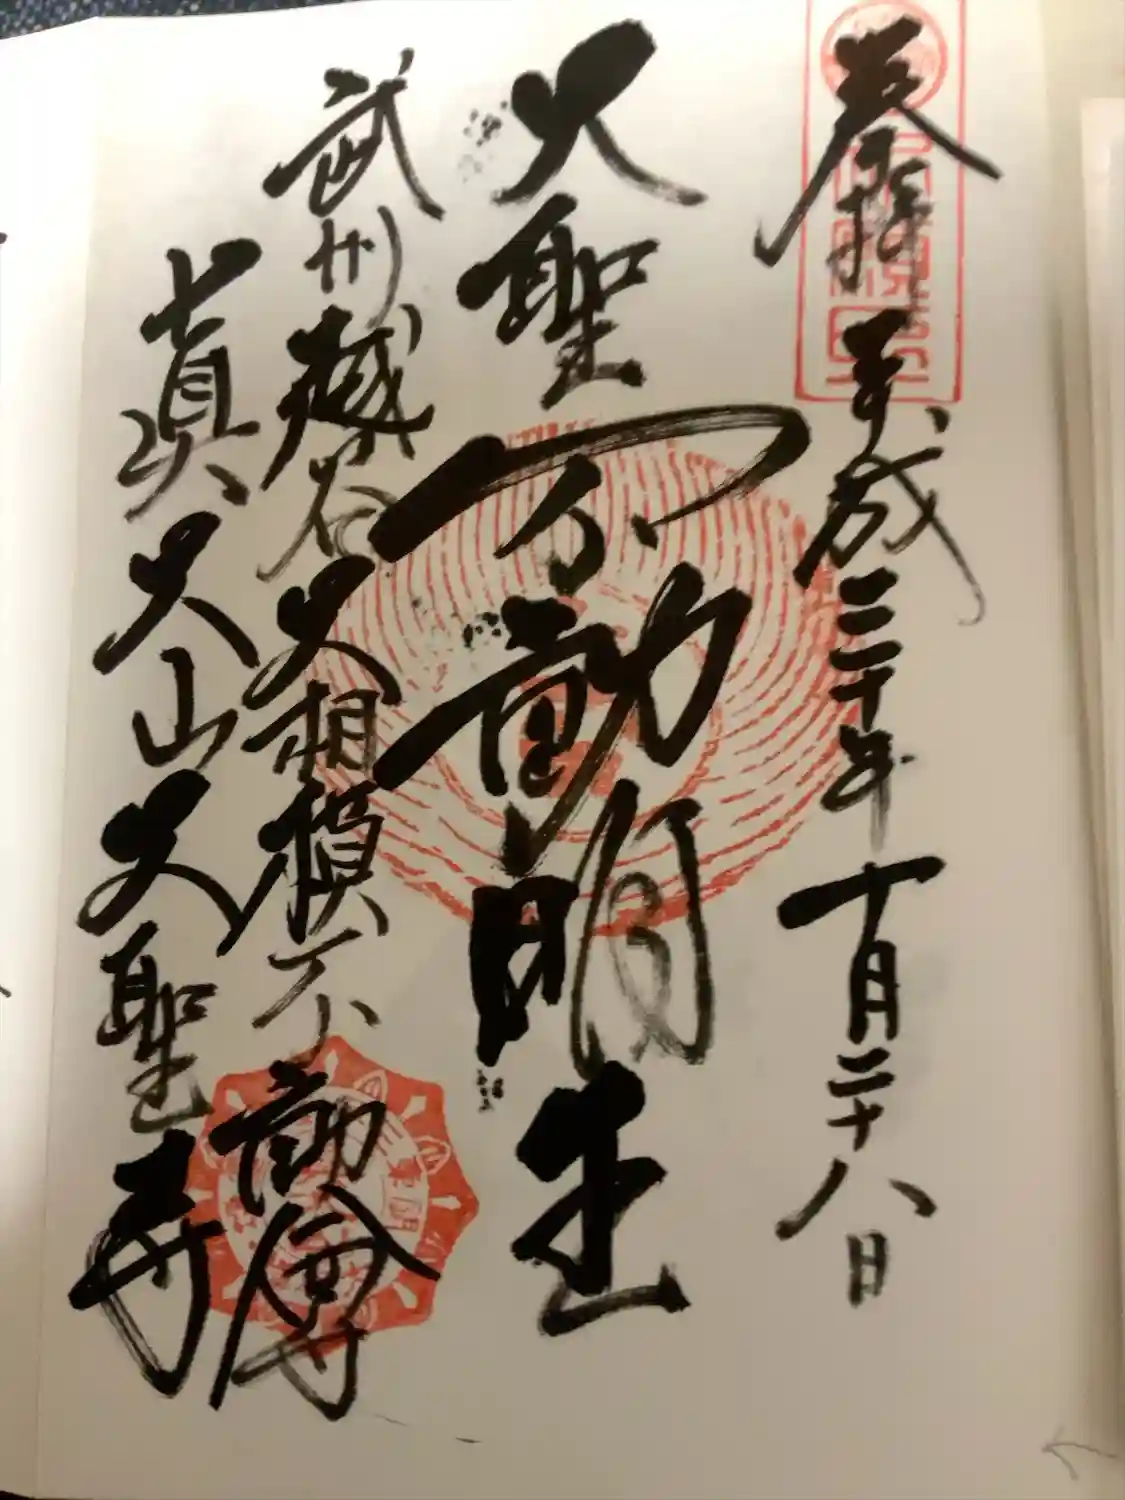 奉拝 平成三十年十月二十八日
大聖不動明王
武州越谷大相模不動尊
眞大山大聖寺